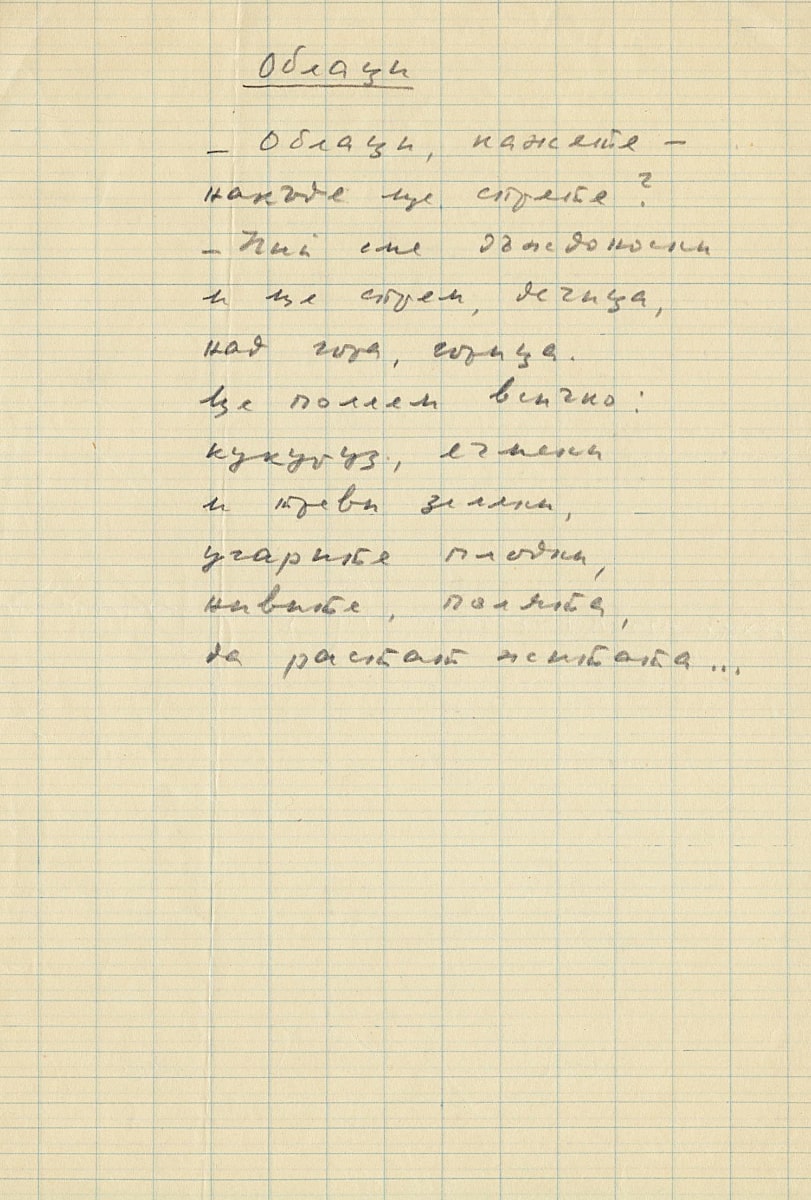 Облаци
– Облаци, кажете –
накъде ще спрете?
– Ний сме дъждоносни
и ще спрем, дечица,
над гора, горица.
Ще полеем всичко:
кукуруз, ечмени
и треви зелени,
угарите плодни,
нивите, полята,
да растат житата...